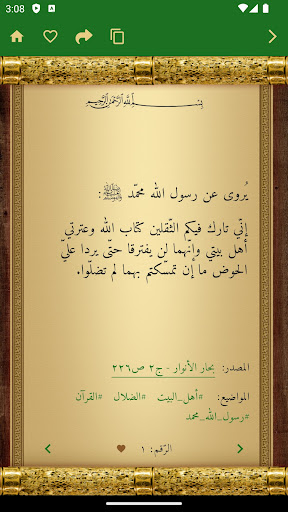 3:08
بِسْمِ اللَّهِ الرَّحْمَنِ الرَّحِيمِ
يُروى عن رسول الله محمّد ﷺ:
إنّي تارك فيكم الثّقلين كتاب الله وعترتي
أهل بيتي وإنّهما لن يفترقا حتّى يردا عليّ
الحوض ما إن تمسّكتم بهما لم تضلّوا.
المصدر: بحار الأنوار - ج٢ ص٢٢٦
المواضيع: #أهل_البيت #الضلال #القرآن
#رسول_الله_محمد
الرّقم: ١